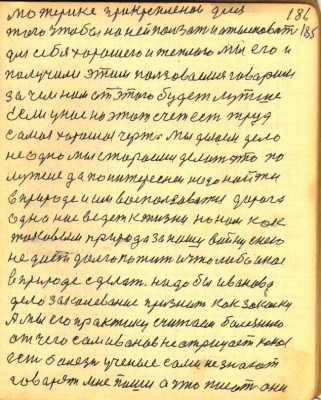 186
185
материке прикрепленой для
того чтобы на ней ползать и отыскивать
для себя хорошего и теплого мы его и
получили этим ползоваемся говорим
за чем нам от этого будет лутше
если у нас на этот счет ест труд
самая хорошая черта мы делаем дело
не одно мы стараемся делат это по
лутше да поинтересней надо найти
в природе и им восползоватся дорога
одна нас ведет к жизни но нам как
таковым природа за нашу войну с нею
не дает долго пожит и что либо иное
в природе сделат. надо бы иваново
дело закаливание признат как законку
А мы его практику считаем болезнию
от чего сам иванов не отрицает какая
ест болезн ученые сами не знают
говорят мне пиши а что писат они